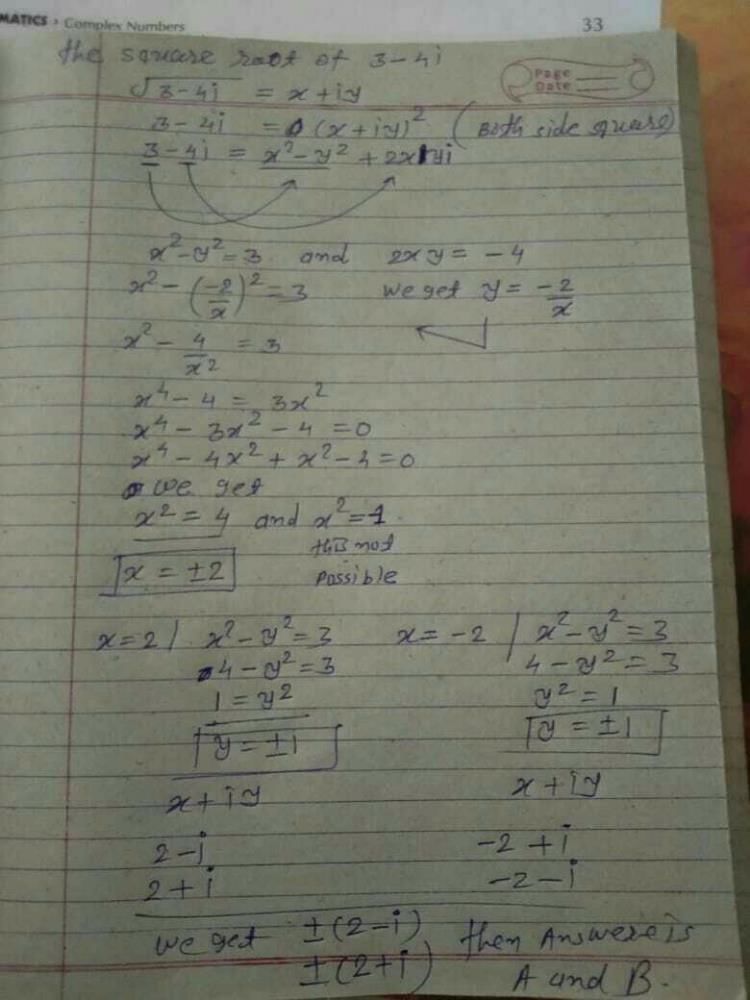 MATICS › Complex Numbers 33
the square root of 3-4i
Page
Date
√3-4i = x+iy
3-4i = (x+iy)² (Both side square)
3-4i = x²-y² + 2xyi
x²-y²=3 and 2xy = -4
x² - (-2/x)² = 3 we get y = -2/x
x² - 4/x² = 3
x⁴-4 = 3x²
x⁴-3x²-4 = 0
x⁴-4x²+x²-4=0
we get
x² = 4 and x²=1.
this not
possible
x = ±2
x=2 | x²-y²=3 x=-2 | x²-y²=3
4-y²=3 4-y²=3
1=y² y²=1
y=±1 y=±1
x+iy x+iy
2-i -2+i
2+i -2-i
we get ±(2-i) then Answere is
±(2+i) A and B.